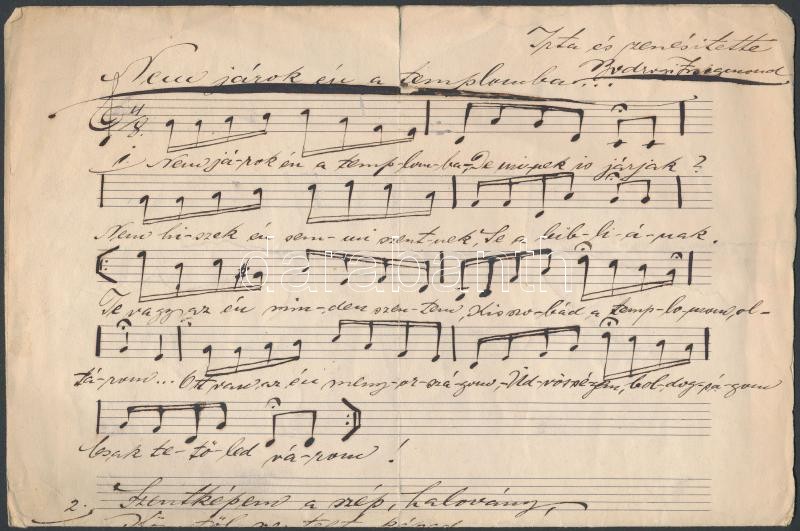 Irta és zenésitette
Nem járok én a templomba...
4/8
1. Nem já-rok én a temp-lom-ba, De mi-nek is járjak?
Nem hi-szek én sem-mi szent-nek, Se a bib-li-á-nak.
Te vagy az én min-den szen-tem, Kis szo-bád a temp-lo-mom, ol-
tá-rom... Ott van az én meny-or-szá-gom, Üd-vösségem, bol-dog-sá-gom
Csak te-tő-led vá-rom!
darabanth
2. Szentképem a szép, halovány,